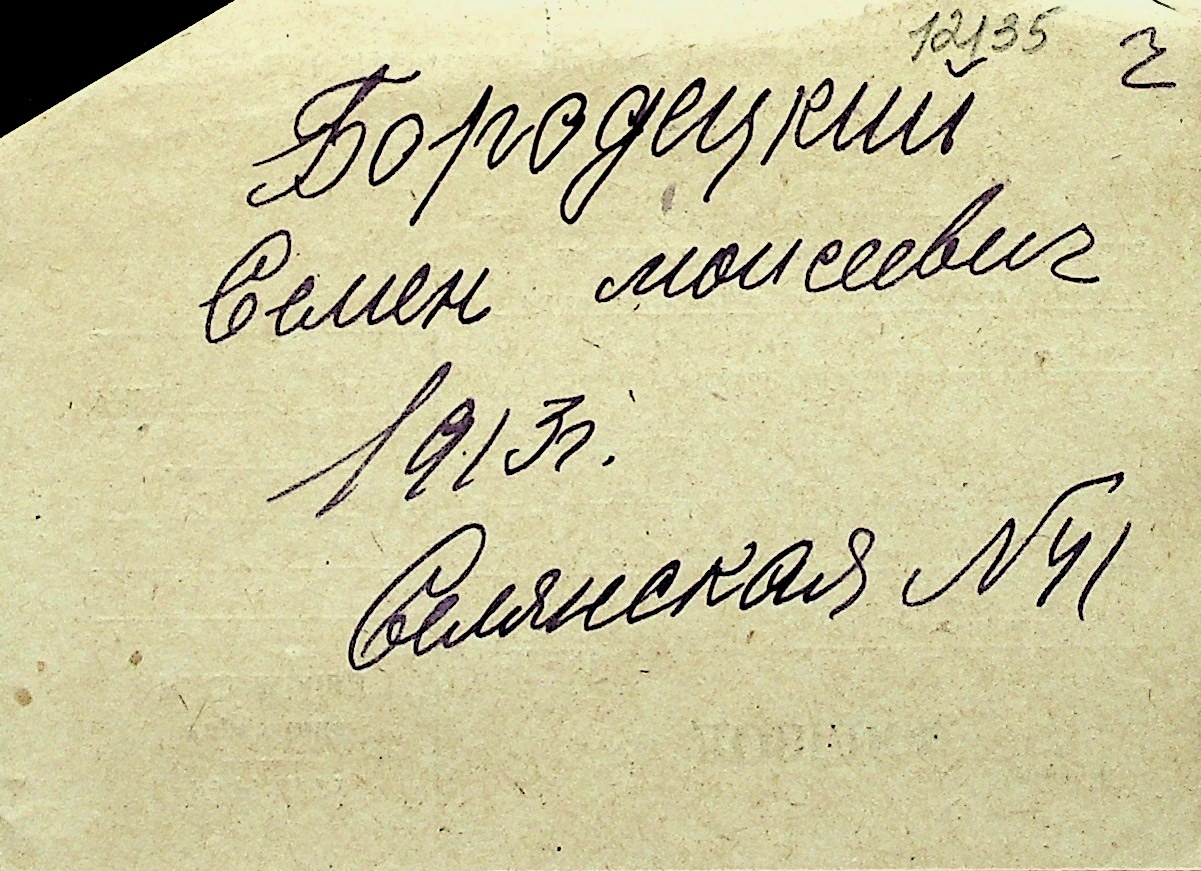 12135 2
Бородецкий
Семен моисеевич
1913г.
Селянская №41